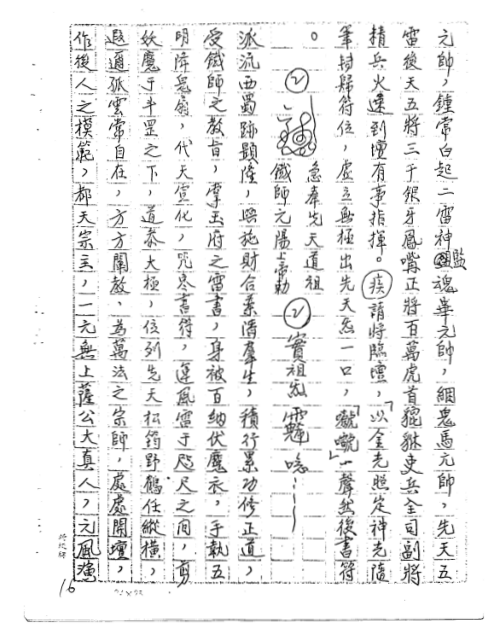 元帥，鍾常白起二雷神監魂畢元帥，綑鬼馬元帥，先天五
雷後天五將三千銀牙鳳嘴正將百萬虎首貔貅吏兵全司副將
精兵火速到壇有事指揮。疾請將臨壇，「以金光照定神光隨
筆封歸符位，虛立無極出先天炁一口，「囐囐」一聲然後書符
。② 急奉先天道祖 鐵師元陽上帝勅 ② 寶祖炁 唸
派流西蜀跡顯陸，興施財合藥濟羣生，積行累功修正道，
受鐵師之教旨，掌玉府之雷書，身被百納伏魔衣，手執五
明降鬼扇，代天宣化，咒棗書符，運風雷于咫尺之間，剪
妖魔于斗罡之下，道泰大極，位列先天松筠野鶴任縱橫，
遐邇孤雲常自在，方方闡教，為萬法之宗師，處處開壇，
作後人之模範，都天宗主，一元無上薩公大真人，元風演
16